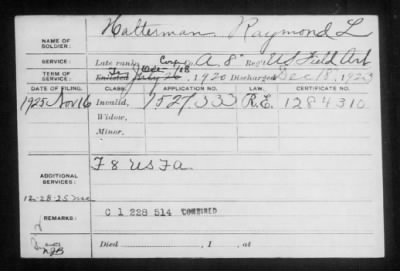 NAME OF SOLDIER: Halterman Raymond L
SERVICE: Late rank, Co. A, 8" Reg't US Field Art
TERM OF SERVICE: Enlisted July 1920 Discharged Dec 18, 1923
DATE OF FILING. CLASS. APPLICATION NO. LAW. CERTIFICATE NO.
1925 Nov 16 Invalid, 1527333 R.E. 1284310
Widow,
Minor,
ADDITIONAL SERVICES: F 8 US F A
12-28-25
REMARKS: C 1 228 514 COMBINED
Died , 1 , at